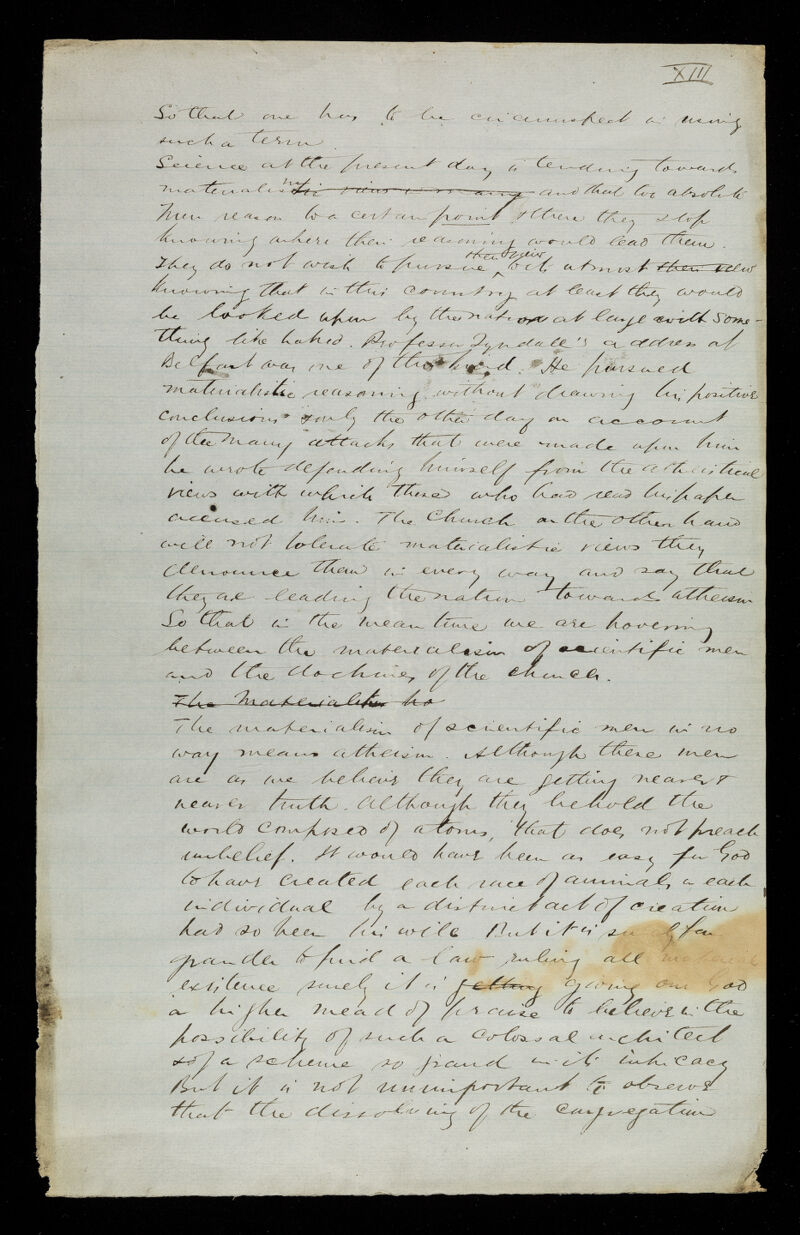 XIII
So that one has to be circumspect in using
such a term.
Science at the present day is tending towards
materialism and that too absolute
Men reason to a certain point & there they stop
knowing where their reasoning would lead them.
They do not wish to pursue that view to its utmost their view
knowing that in this country at least they would
be looked upon by the nation at large with some-
thing like hatred. Professor Tyndale's address at
Belfast was one of this kind. He pursued
materialistic reasoning without drawing his positive
conclusions & only the other day on account
of the many attacks that were made upon him
he wrote defending himself from the atheistical
views with which those who had read his paper
accused him. The Church on the other hand
will not tolerate materialistic views they
denounce them in every way and say that
they are leading the nation towards atheism
So that in the mean time we are hovering
between the materialism of scientific men
and the doctrines of the church.
The Materialism ho
The materialism of scientific men in no
way means atheism. Although these men
are as we believe they are getting nearer &
nearer truth. Although they behold the
world composed of atoms, that does not preach
unbelief. It would have been as easy for God
to have created each race of animals or each
individual by a distinct act of creation
had so been his will. But it is so far
grander to find a law ruling all material
existence surely it is giving our God
a higher mead of praise to believe in the
possibility of such a colossal architect
& of a scheme so grand in its intricacy
But it is not unimportant to observe
that the dissolving of the congregation